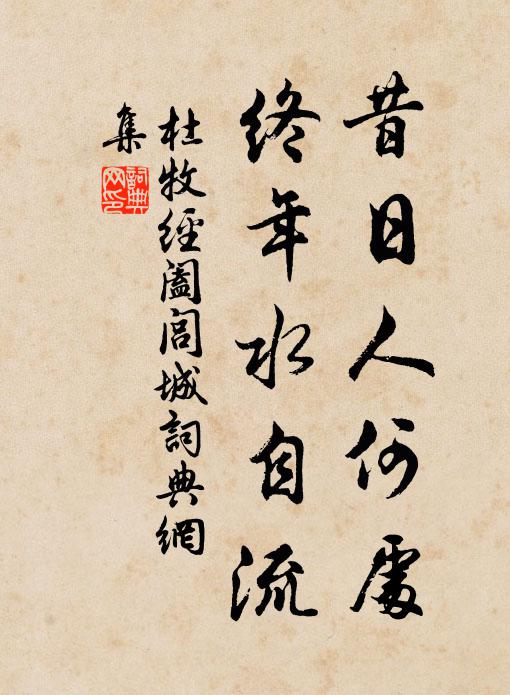 昔日人何處
終年水自流
杜牧經闔閭城詞典網
集
詞典網印